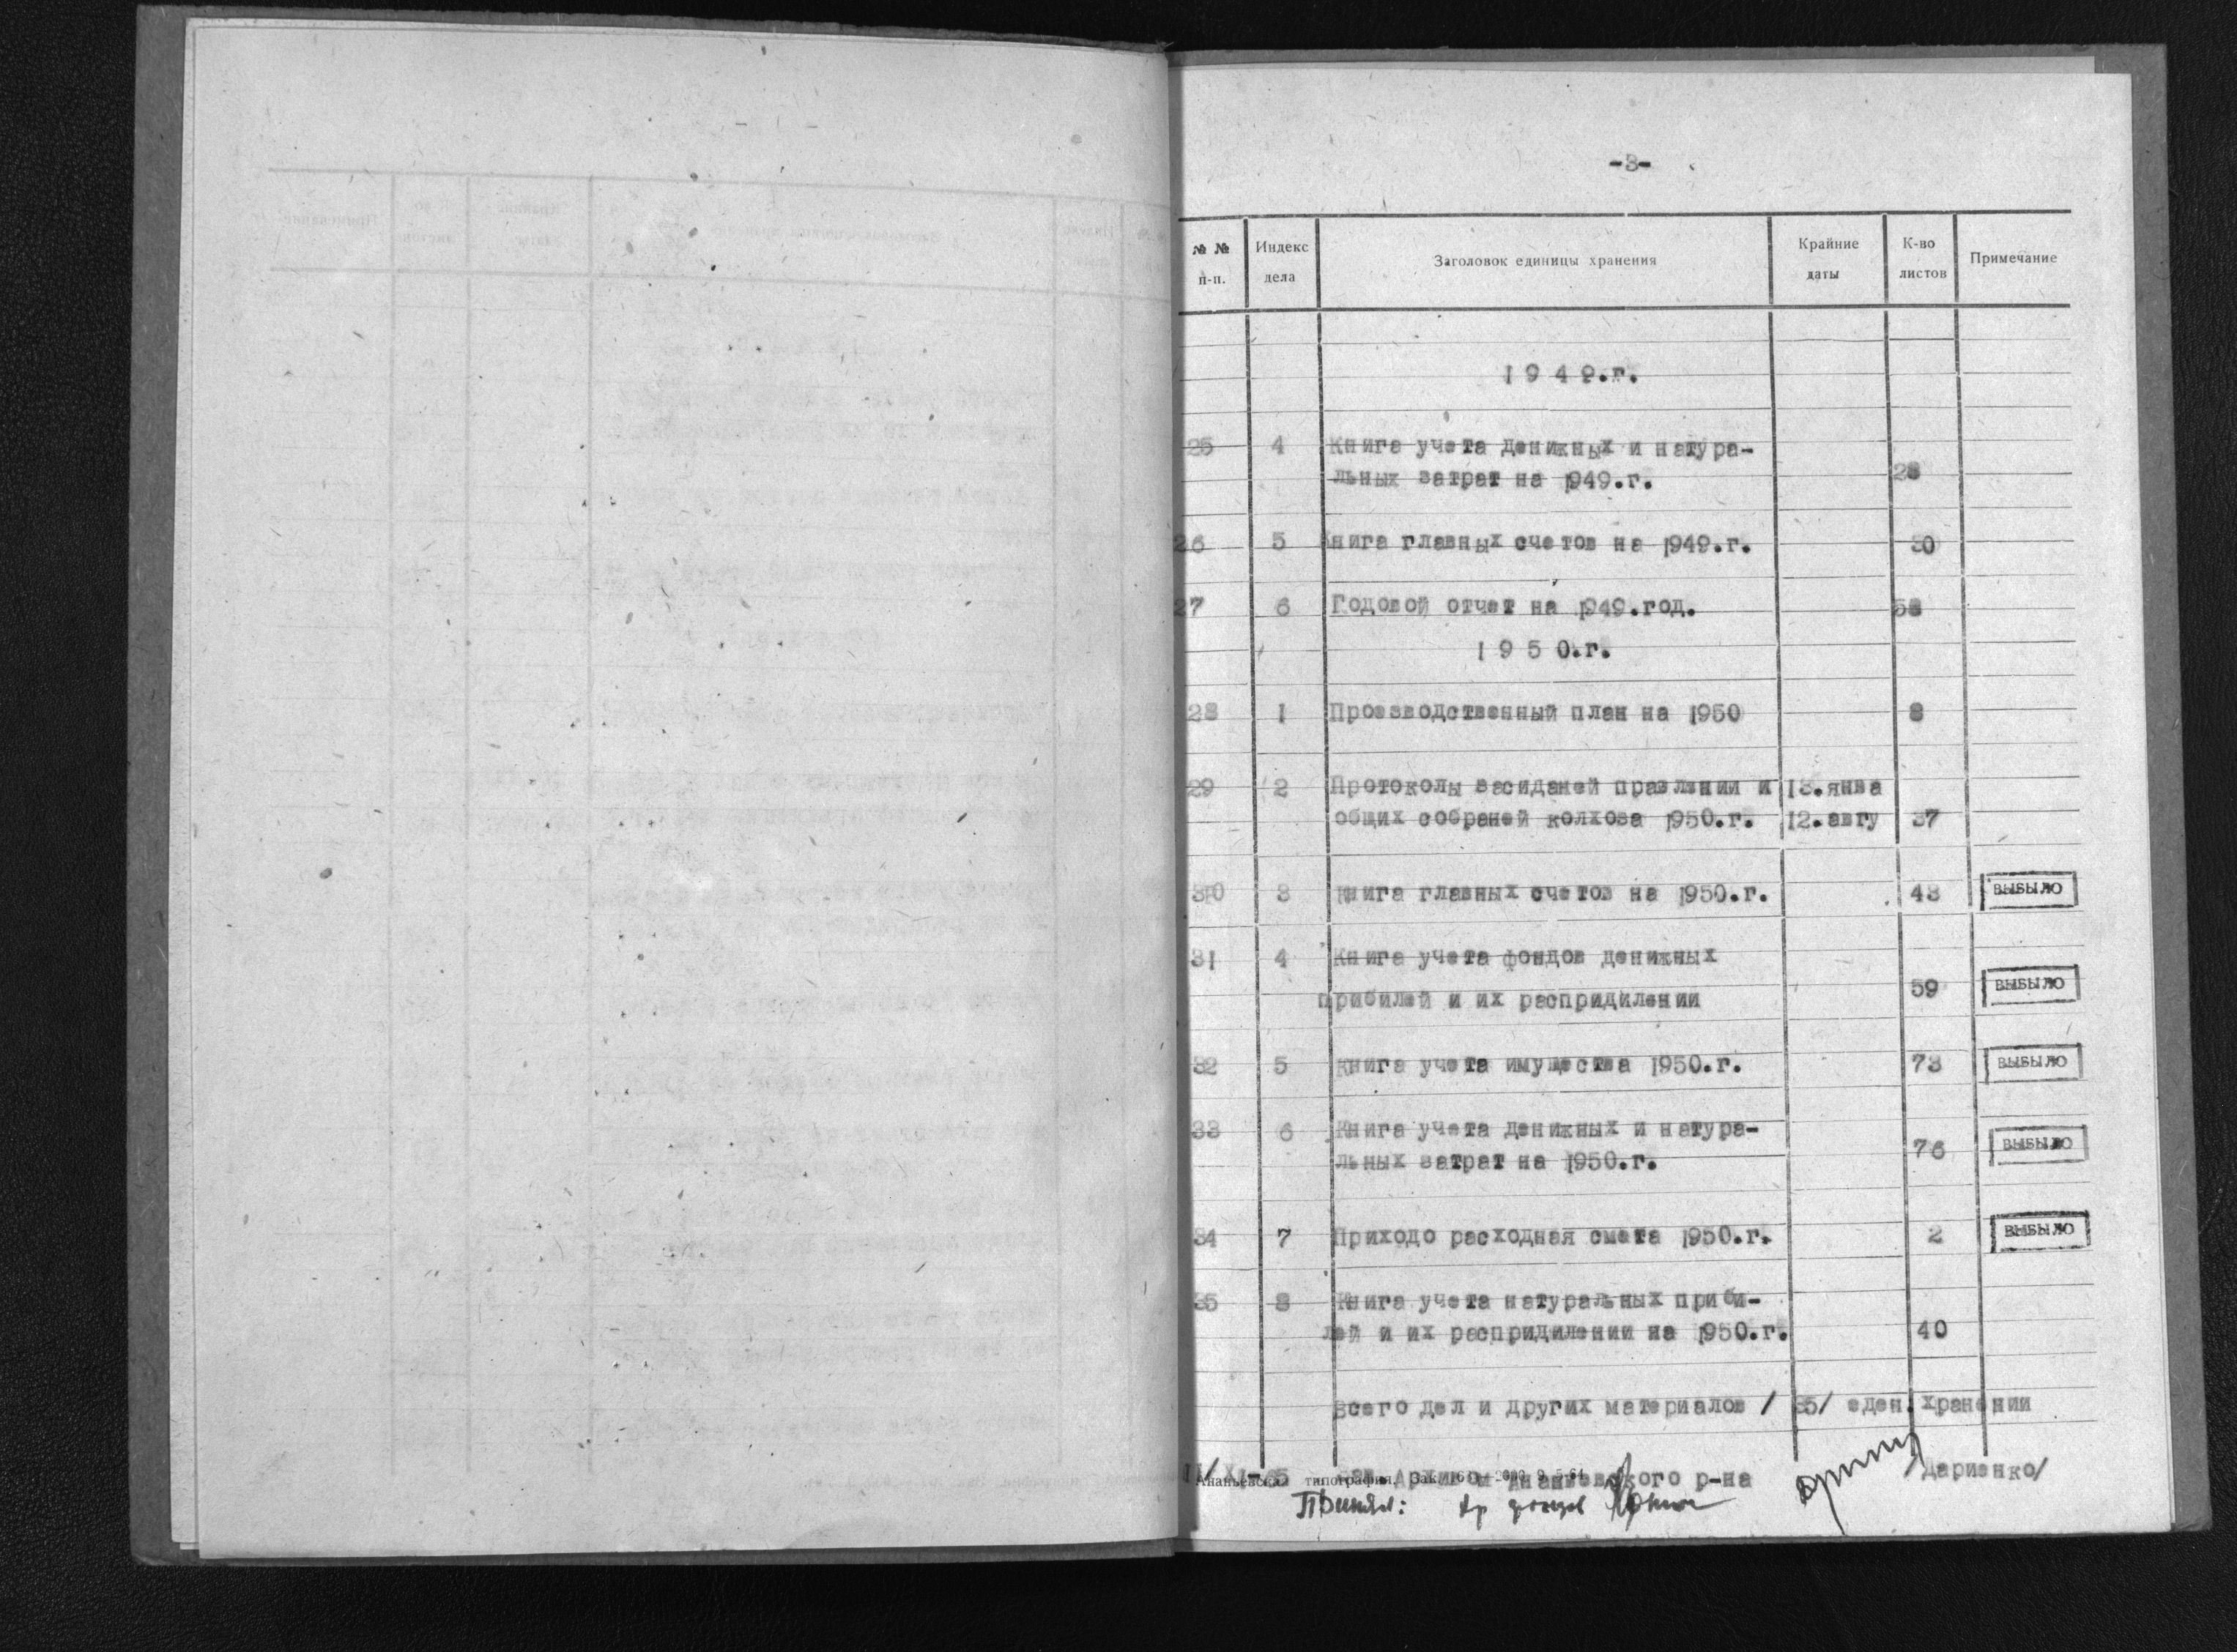 -3-
№ № п-п. Индекс дела Заголовок единицы хранения Крайние даты К-во листов Примечание
1949.г.
25 4 Книга учета денижных и натура-
льных затрат на 1949.г. 28
26 5 Книга главных счетов на 1949.г. 30
27 6 Годовой отчет на 1949.год. 58
1950.г.
28 1 Производственный план на 1950 8
29 2 Протоколы васиданей правлении и 18.янва
общих собраней колхоза 1950.г. 12.авгу 37
30 3 Книга главных счетов на 1950.г. 43 ВЫБЫЛО
31 4 Книга учета фондов денижных
прибилей и их распридилении 59 ВЫБЫЛО
32 5 Книга учета имущества 1950.г. 73 ВЫБЫЛО
33 6 Книга учета денижных и натура-
льных затрат на 1950.г. 76 ВЫБЫЛО
34 7 Приходо расходная смета 1950.г. 2 ВЫБЫЛО
35 8 Книга учета натуральных приби-
лей и их распридилении на 1950.г. 40
всего дел и других материалов /35/ еден. хранении
Ананьевского р-на /Дариенко/
типография. Зак.
Принял: